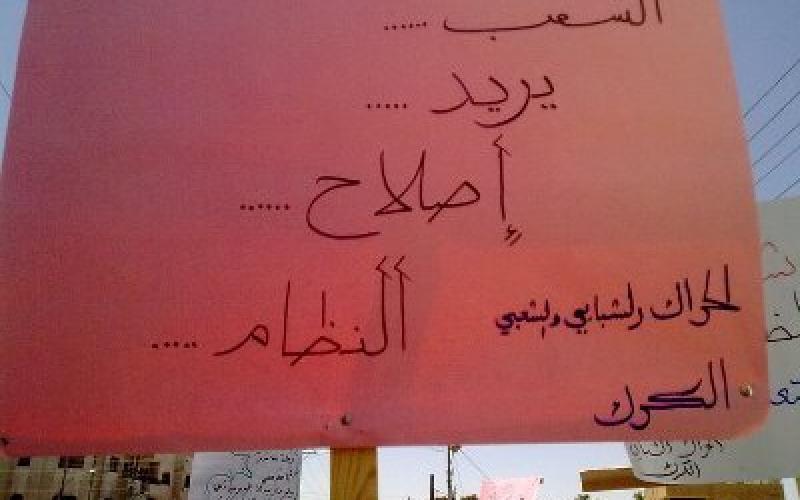 الشعب ......
يريد .....
إصلاح ......
النظام .....
الحراك الشبابي والشعبي
الكرك
الكرك